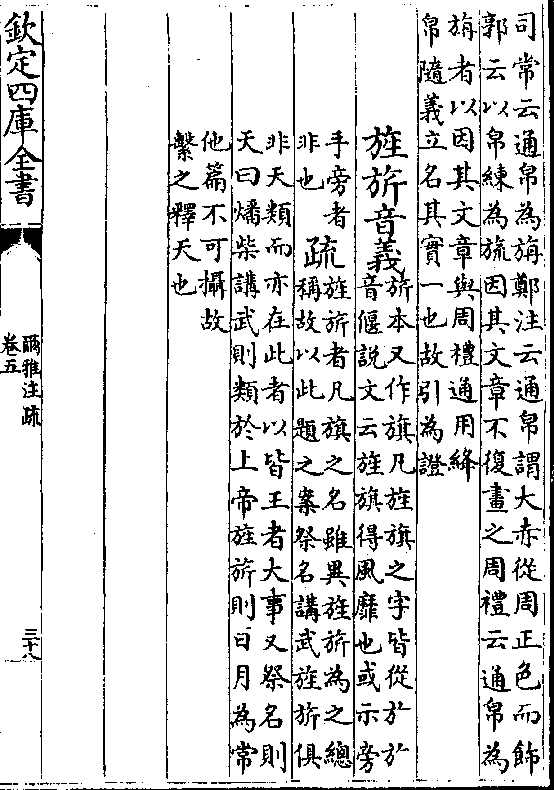 司常云通帛為旃鄭注云通帛謂大赤從周正色而飾
郭云以帛練為旒因其文章不復畫之周禮云通帛為
旃者以因其文章與周禮通用絳
帛隨義立名其實一也故引為證
旌旂音義
旂本又作旗凡旌旗之字皆從於於
音偃説文云旌旗得風靡也或示旁
手旁者
非也
疏
旌旂者凡旗之名雖異旌旂為之總
稱故以此題之案祭名講武旌旂俱
非天類而亦在此者以皆王者大事又祭名則
天曰燔柴講武則類於上帝旌旂則日月為常
他篇不可攝故
繫之釋天也
欽定四庫全書
爾雅注疏
卷五
三十八